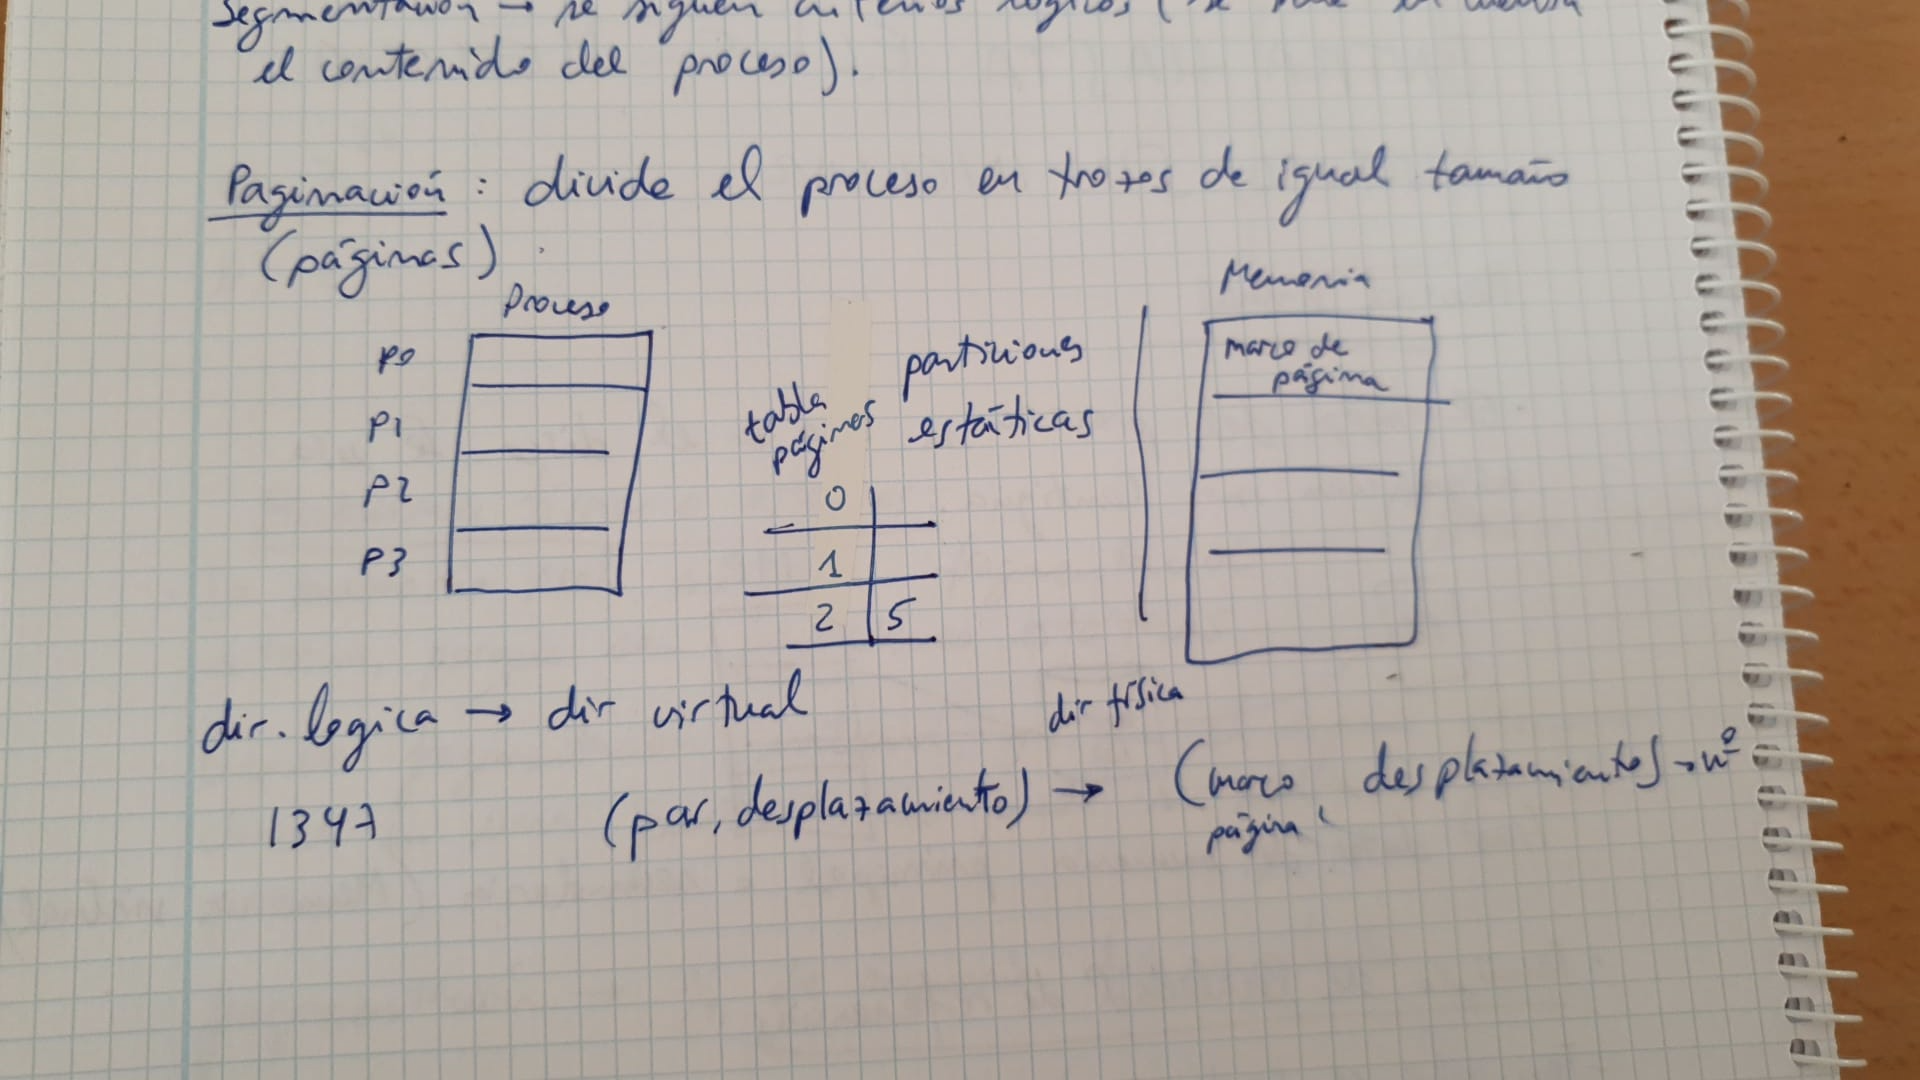 Segmentación → se siguen criterios lógicos (se
el contenido del proceso).
Paginación : divide el proceso en trozos de igual tamaño
(páginas)
Proceso
Memoria
P0
P1
P2
P3
tabla
páginas
0
1
2 5
particiones
estáticas
marco de
página
dir. logica → dir virtual
dir física
1347
(par, desplazamiento) → (marco página, desplazamiento) → nº